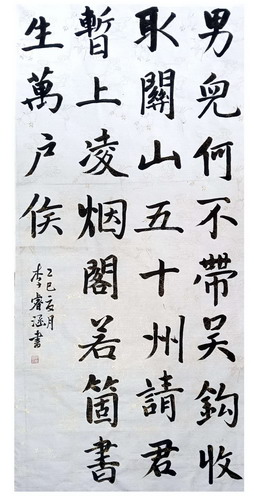 男兒何不帶吳鈎收
取關山五十州請君
暫上凌烟閣若箇書
生萬户侯
乙巳夏月
李睿涵書